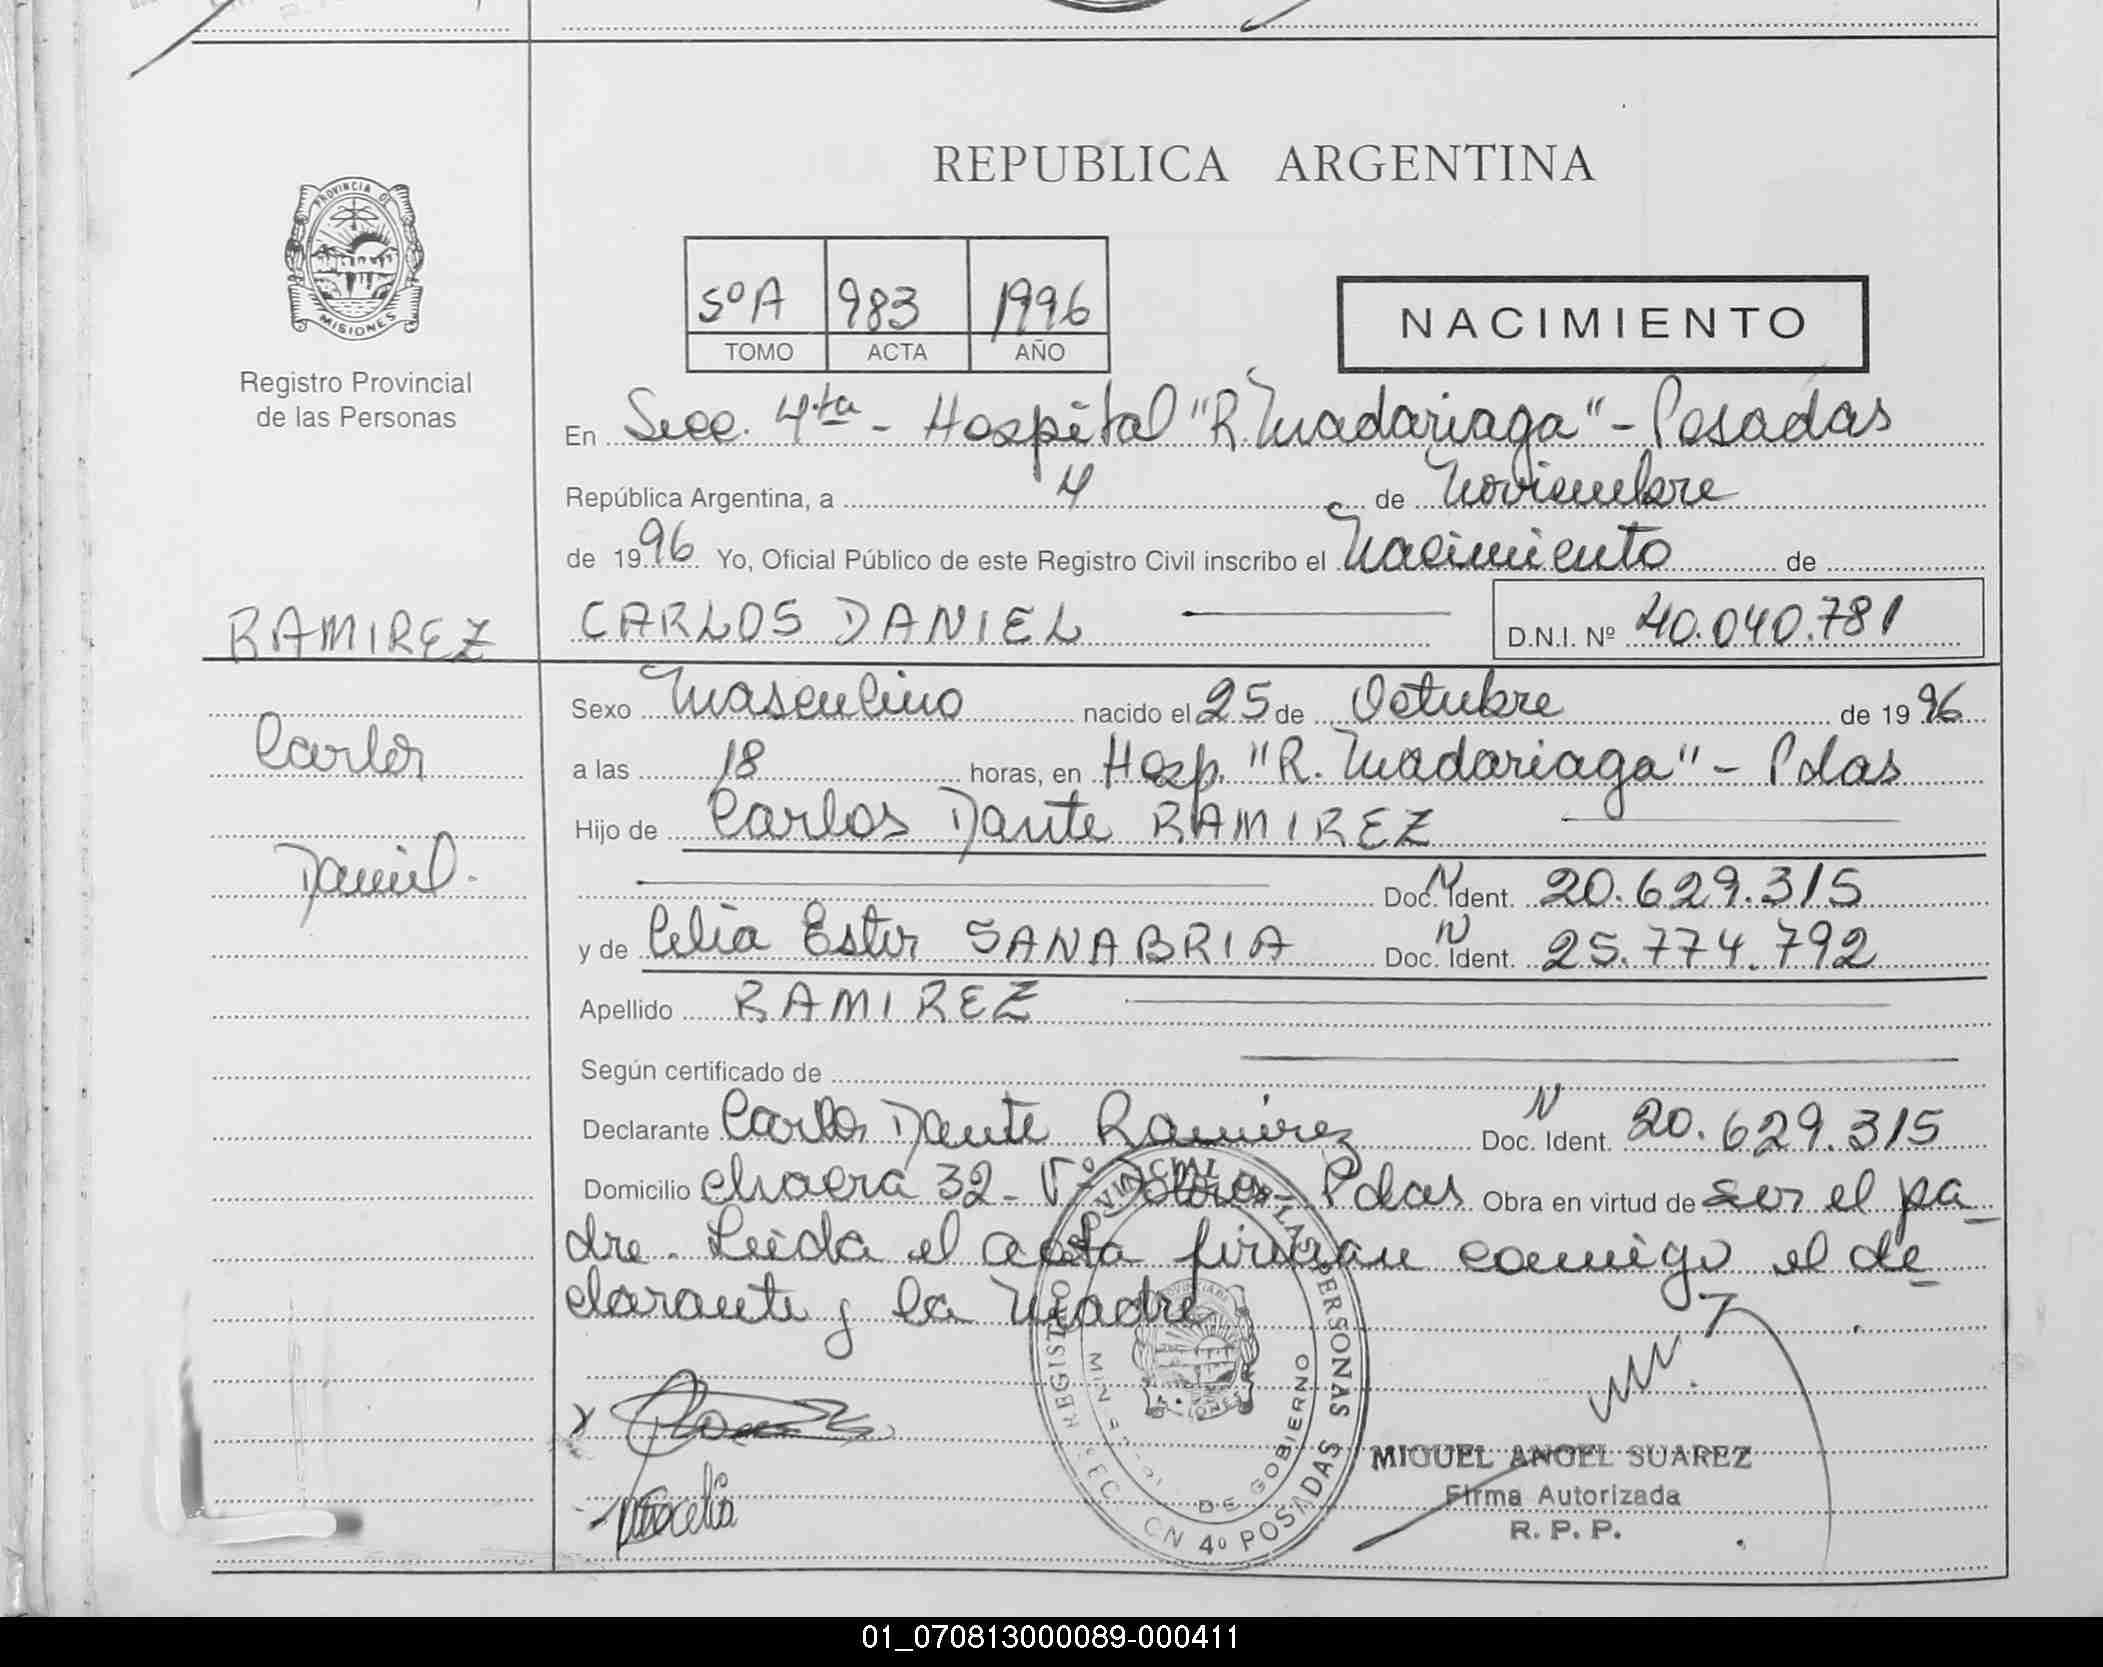 REPUBLICA ARGENTINA
PROVINCIA DE
MISIONES
Registro Provincial
de las Personas
5º A 983 1996
TOMO ACTA AÑO
NACIMIENTO
En Secc. 4ta - Hospital "R. Madariaga" - Posadas
República Argentina, a 4 de Noviembre
de 1996 Yo, Oficial Público de este Registro Civil inscribo el Nacimiento de
RAMIREZ CARLOS DANIEL D.N.I. Nº 40.040.781
Sexo Masculino nacido el 25 de Octubre de 1996
Carlos
a las 18 horas, en Hosp. "R. Madariaga" - Pdas
Hijo de Carlos Dante RAMIREZ
Daniel.
Doc. N Ident. 20.629.315
y de Celia Ester SANABRIA Doc. N Ident. 25.774.792
Apellido RAMIREZ
Según certificado de
Declarante Carlos Dante Ramirez N Doc. Ident. 20.629.315
Domicilio chacra 32 - Vº Dolores - Pdas Obra en virtud de ser el pa-
dre. Leida el acta firman conmigo el de-
clarante y la Madre
REGISTRO PROVINCIAL DE LAS PERSONAS
DE GOBIERNO
SECCION 4º POSADAS
MIGUEL ANGEL SUAREZ
Firma Autorizada
R. P. P.
01_070813000089-000411